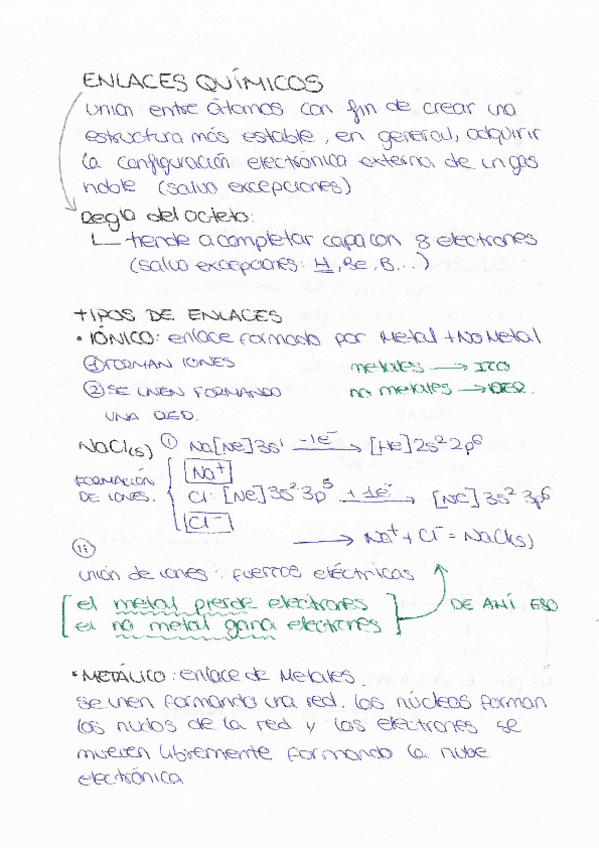 ENLACES QUÍMICOS
unión entre átomos con fin de crear una
estructura más estable, en general, adquirir
la configuración electrónica externa de un gas
noble (salvo excepciones)
Regla del octeto:
tiende a completar capa con 8 electrones
(salvo excepciones: H, Be, B, ...)
TIPOS DE ENLACES
• IÓNICO: enlace formado por Metal + No Metal
① FORMAN IONES
metales → IZQ
② SE UNEN FORMANDO
no metales → DER.
UNA RED.
NaCl(s) ① Na[Ne]3s¹ -1e⁻ → [He]2s²2p⁶
FORMACIÓN
DE IONES.
Na⁺
Cl: [Ne]3s²3p⁵ +1e⁻ → [Ne]3s²3p⁶
Cl⁻
→ Na⁺ + Cl⁻ = NaCl(s)
ⅱ
unión de iones: fuerzas eléctricas
[el metal pierde electrones
el no metal gana electrones]
DE AHÍ ESO
• METÁLICO: enlace de Metales.
se unen formando una red. los núcleos forman
los nudos de la red y los electrones se
mueven libremente formando la nube
electrónica